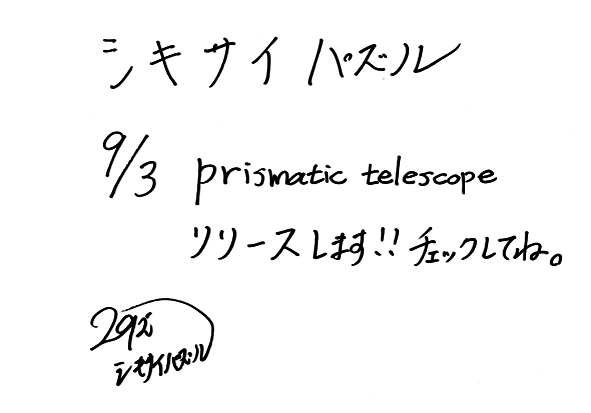 シキサイパズル
9/3 prismatic telescope
リリースします!! チェックしてね。
シキサイパズル